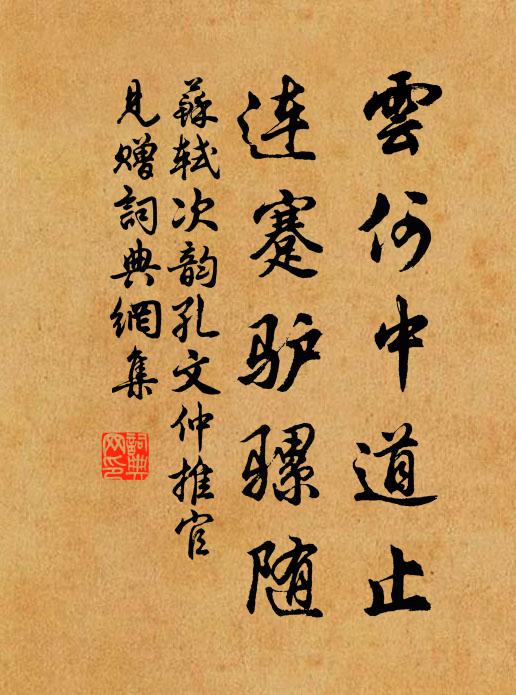 雲何中道止
连蹇驴骡随
蘇軾次韵孔文仲推官
見赠詞典網集
詞典
网印